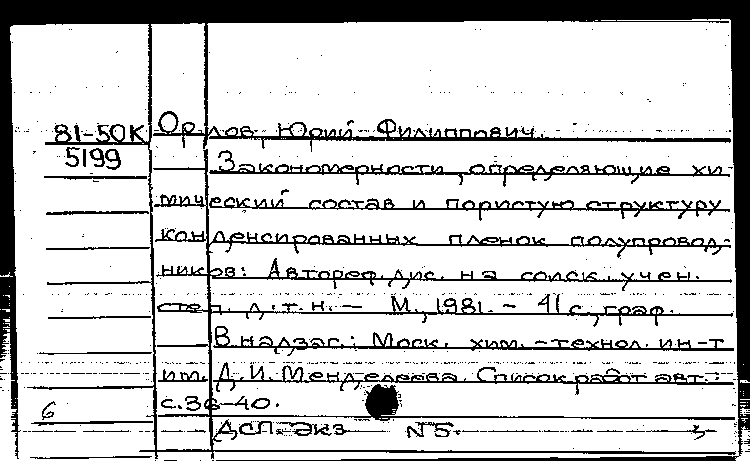 81-50К Орлов, Юрий Филиппович.
5199 Закономерности, определяющие хи-
мический состав и пористую структуру
конденсированных пленок полупровод-
ников: Автореф. дис. на соиск. учен.
степ. д.т.н. — М., 1981. - 41 с., граф.
В надзаг.: Моск. хим.-технол. ин-т
им. Д.И. Менделеева. Список работ авт.:
с. 36-40.
6
ДСП. Экз N5.